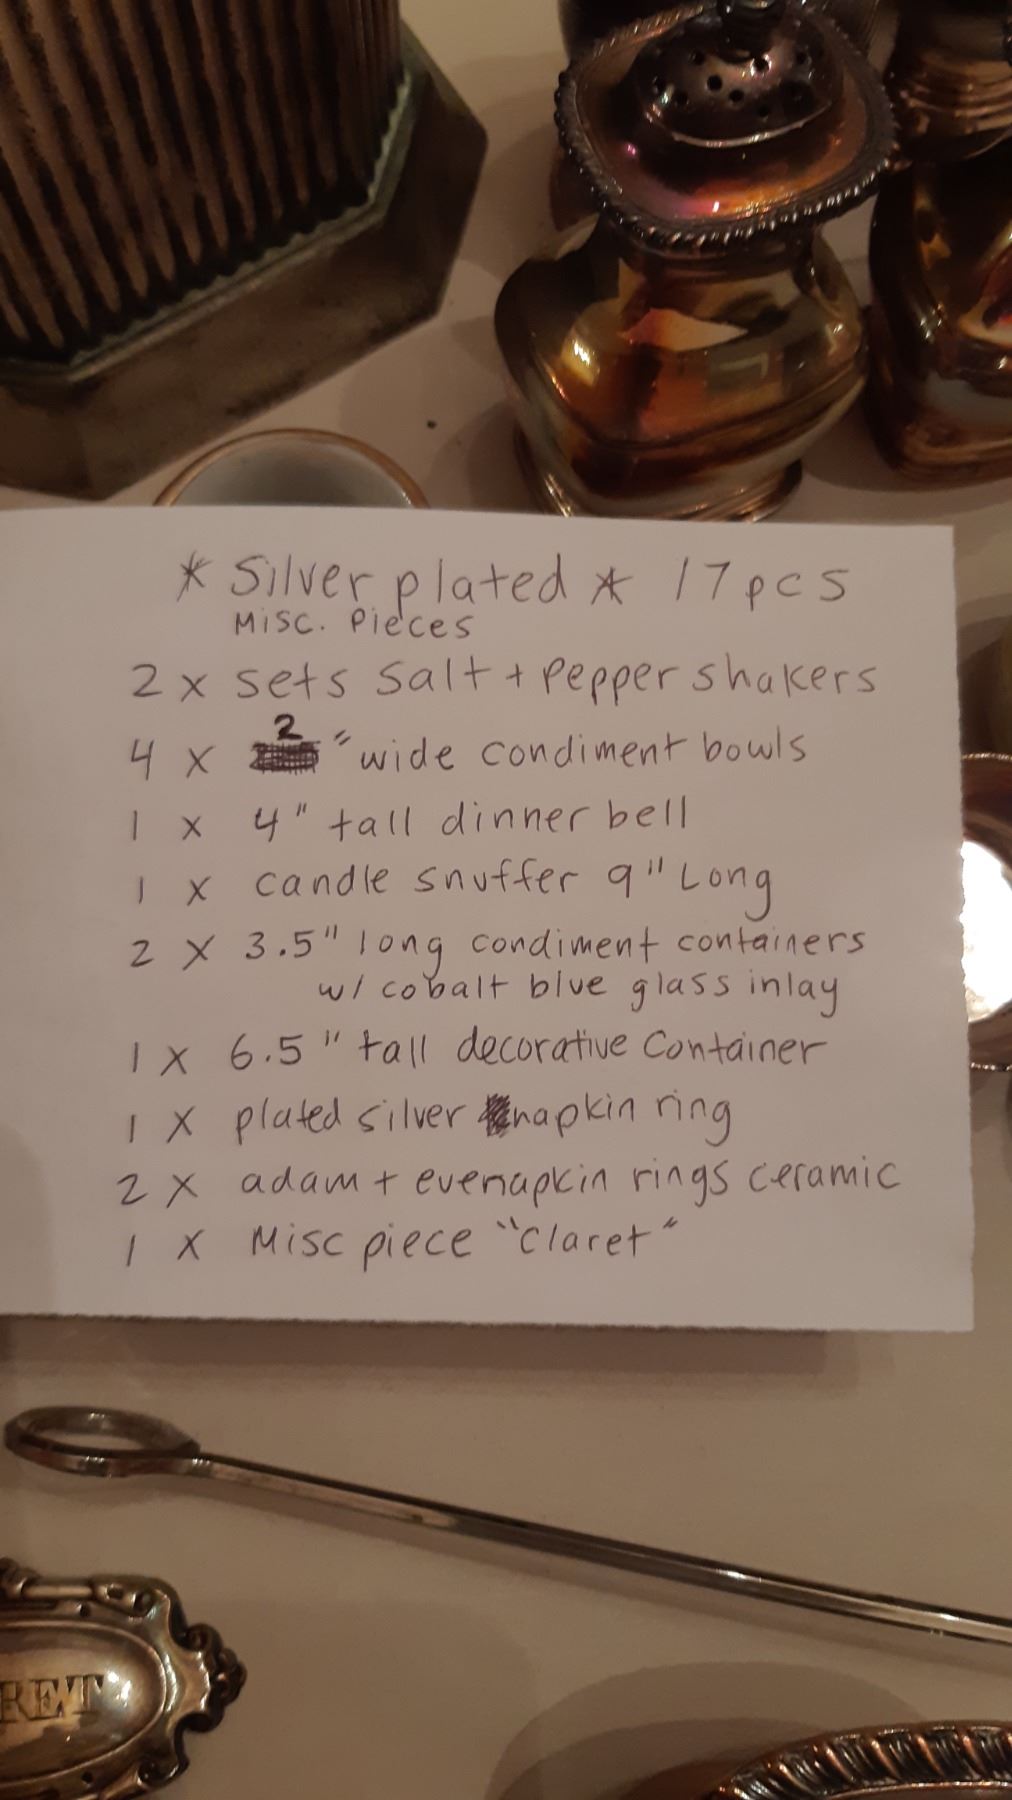 * Silver plated * 17 pcs
Misc. Pieces
2 x sets salt + pepper shakers
4 x 2" wide condiment bowls
1 x 4" tall dinner bell
1 x candle snuffer 9" Long
2 x 3.5" long condiment containers
w/ cobalt blue glass inlay
1 x 6.5" tall decorative Container
1 x plated silver napkin ring
2 x adam + eve napkin rings ceramic
1 x Misc piece "Claret"
RET